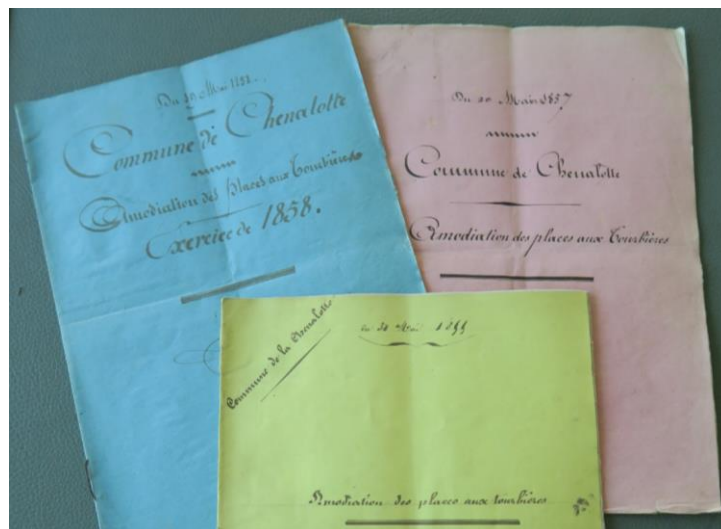 Du 30 Mai 1858.
Commune de Chenalotte
Amodiation des places aux Tourbières
Exercice de 1858.
Du 20 Mai 1857
Commune de Chenalotte
Amodiation des places aux Tourbières
Commune de la Chenalotte
Mai
Amodiation des places aux tourbières